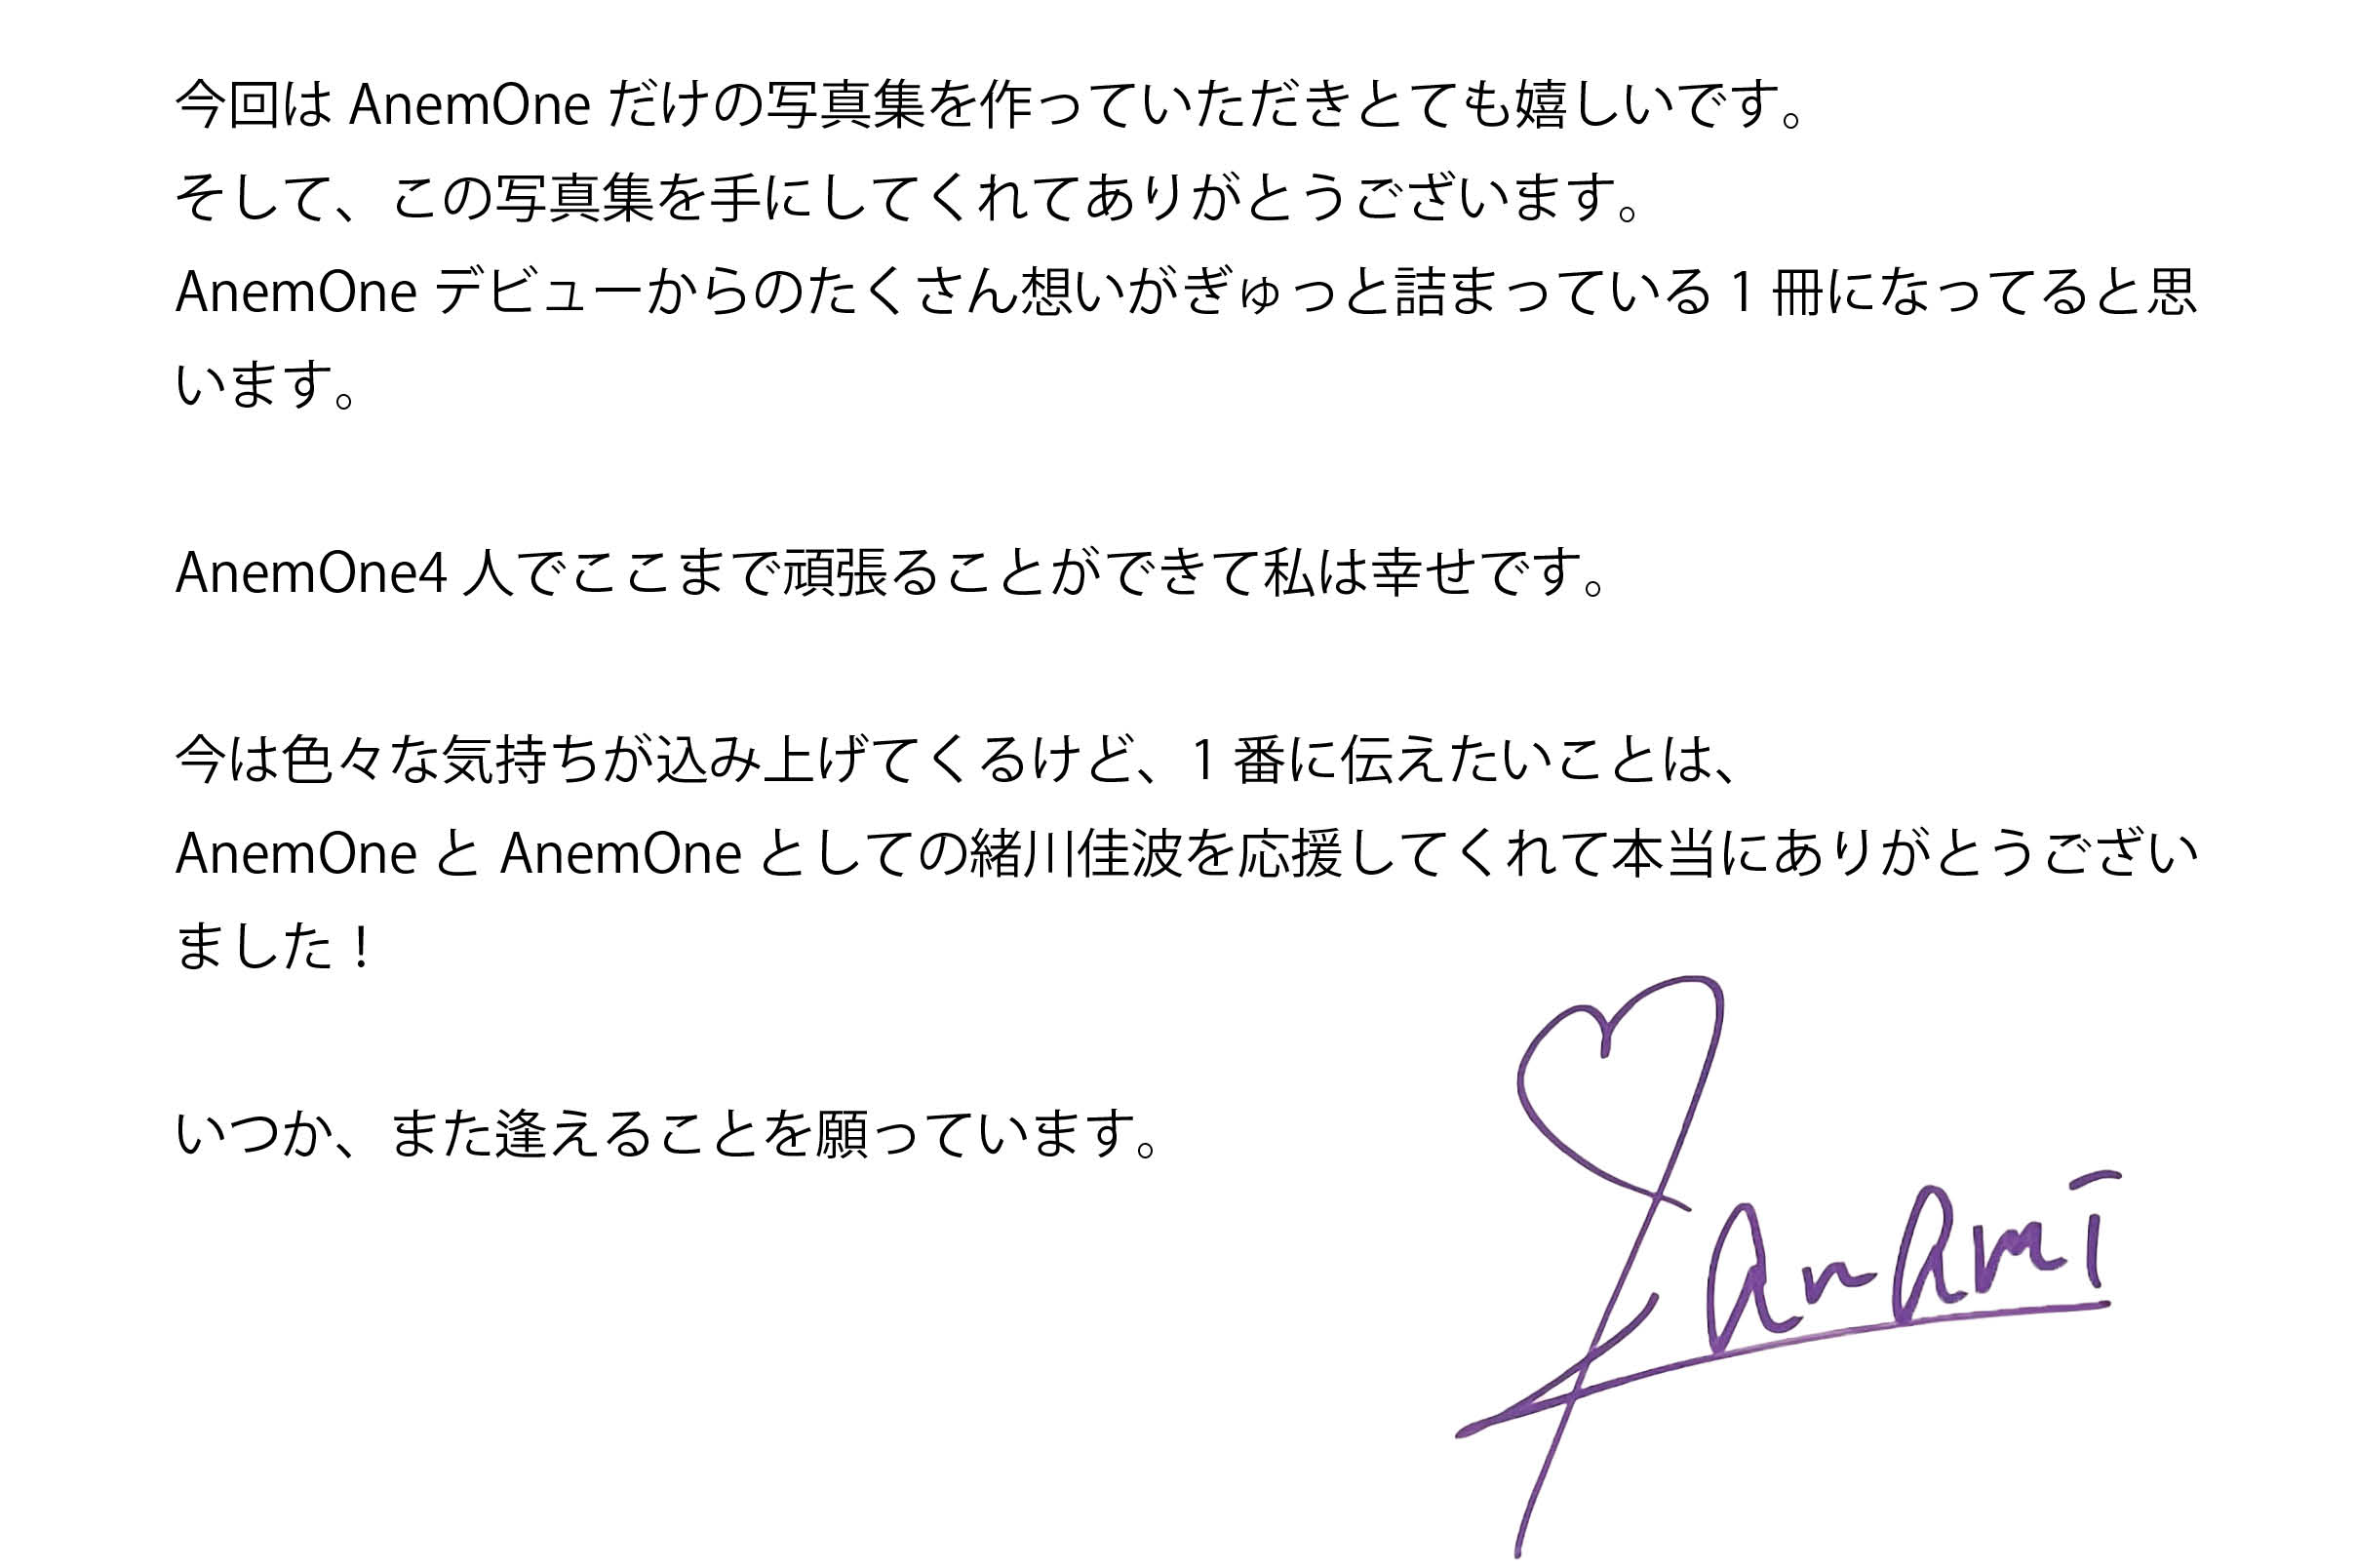 今回は AnemOne だけの写真集を作っていただきとても嬉しいです。
そして、この写真集を手にしてくれてありがとうございます。
AnemOne デビューからのたくさん想いがぎゅっと詰まっている 1 冊になってると思
います。
AnemOne4 人でここまで頑張ることができて私は幸せです。
今は色々な気持ちが込み上げてくるけど、1 番に伝えたいことは、
AnemOne と AnemOne としての緒川佳波を応援してくれて本当にありがとうござい
ました！
いつか、また逢えることを願っています。
Kanami